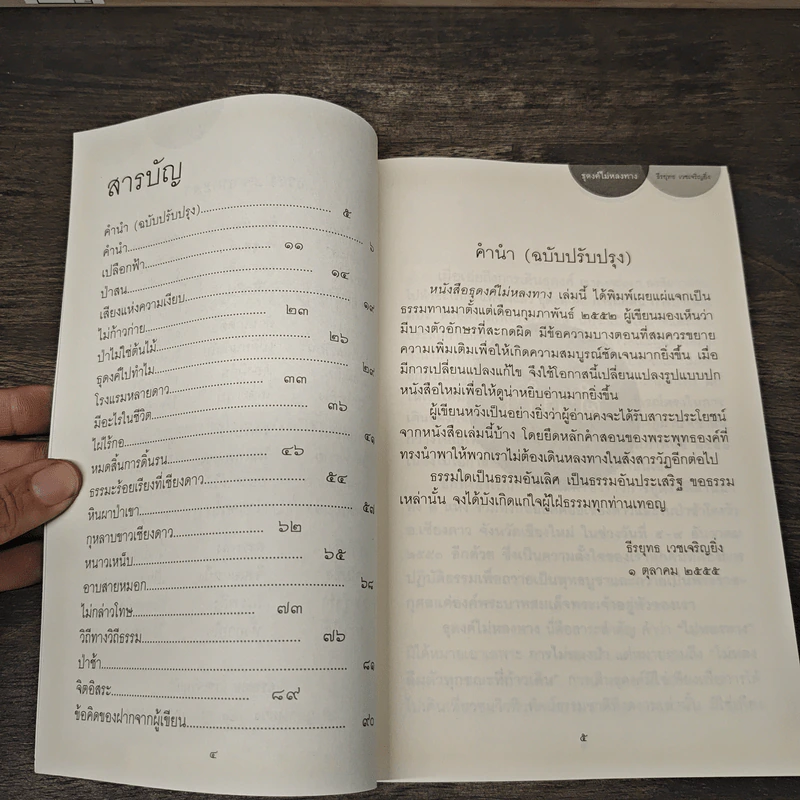 สารบัญ
คำนำ (ฉบับปรับปรุง)..............................๕
คำนำ..............................๖
เปลือกฟ้า..............................๑๑
ป่าสน..............................๑๔
เสียงแห่งความเงียบ..............................๑๙
ไม่ก้าวก่าย..............................๒๓
ป่าไม่ใช่ต้นไม้..............................๒๖
ธุดงค์ไปทำไม..............................๒๙
โรงแรมหลายดาว..............................๓๓
มีอะไรในชีวิต..............................๓๖
ไผ่ไร้กอ..............................๔๑
หมดสิ้นการดิ้นรน..............................๔๖
ธรรมะร้อยเรียงที่เชียงดาว..............................๕๔
หินผาป่าเขา..............................๕๗
กุหลาบขาวเชียงดาว..............................๖๒
หนาวเหน็บ..............................๖๕
อาบสายหมอก..............................๖๘
ไม่กล่าวโทษ..............................๗๓
วิถีทางวิถีธรรม..............................๗๖
ป่าช้า..............................๘๑
จิตอิสระ..............................๘๙
ข้อคิดของฝากจากผู้เขียน..............................๙๐
๔
ธุดงค์ไม่หลงทาง
ธีรยุทธ เวชเจริญยิ่ง
คำนำ (ฉบับปรับปรุง)
หนังสือธุดงค์ไม่หลงทาง เล่มนี้ ได้พิมพ์เผยแผ่แจกเป็น
ธรรมทานมาตั้งแต่เดือนกุมภาพันธ์ ๒๕๕๒ ผู้เขียนมองเห็นว่า
มีบางตัวอักษรที่สะกดผิด มีข้อความบางตอนที่สมควรขยาย
ความเพิ่มเติมเพื่อให้เกิดความสมบูรณ์ชัดเจนมากยิ่งขึ้น เมื่อ
มีการเปลี่ยนแปลงแก้ไข จึงใช้โอกาสนี้เปลี่ยนแปลงรูปแบบปก
หนังสือใหม่เพื่อให้ดูน่าหยิบอ่านมากยิ่งขึ้น
ผู้เขียนหวังเป็นอย่างยิ่งว่าผู้อ่านคงจะได้รับสาระประโยชน์
จากหนังสือเล่มนี้บ้าง โดยยึดหลักคำสอนของพระพุทธองค์ที่
ทรงนำพาให้พวกเราไม่ต้องเดินหลงทางในสังสารวัฏอีกต่อไป
ธรรมใดเป็นธรรมอันเลิศ เป็นธรรมอันประเสริฐ ขอธรรม
เหล่านั้น จงได้บังเกิดแก่ใจผู้ใฝ่ธรรมทุกท่านเทอญ
ธีรยุทธ เวชเจริญยิ่ง
๑ ตุลาคม ๒๕๕๕
๕